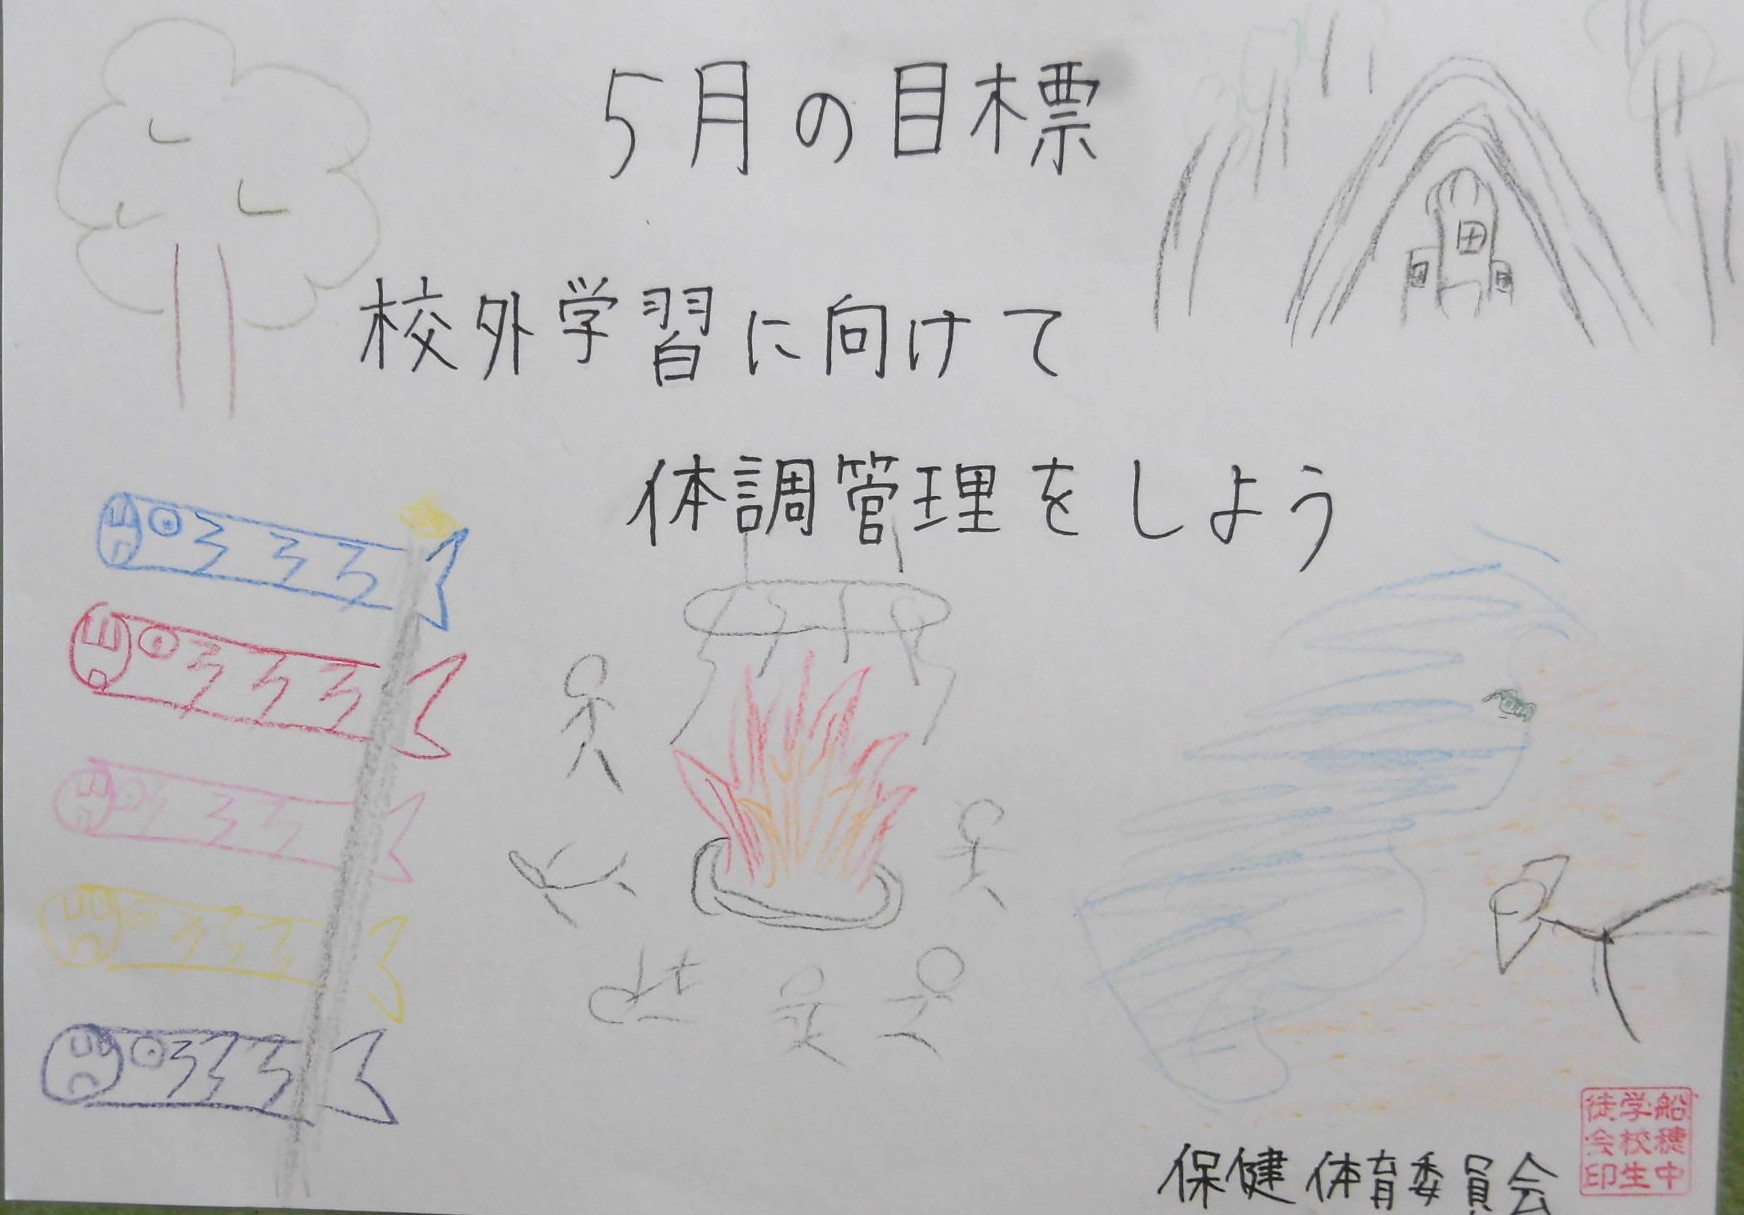 5月の目標
校外学習に向けて
体調管理をしよう
保健体育委員会
船穂中
学校生
徒会印